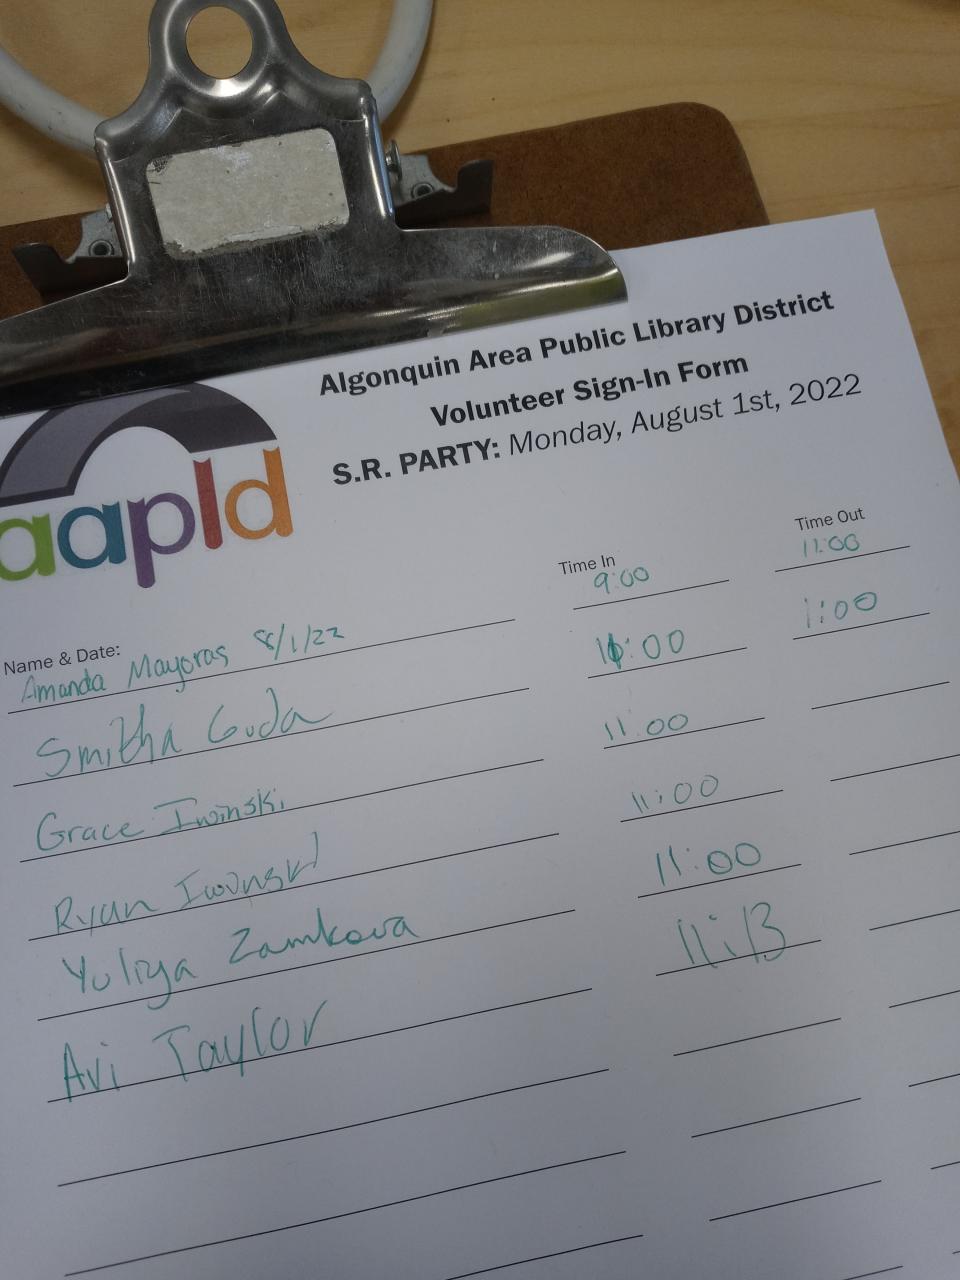 Algonquin Area Public Library District
Volunteer Sign-In Form
S.R. PARTY: Monday, August 1st, 2022
aapld
Name & Date: Time In Time Out
Amanda Mayoras 8/1/22 9:00 11:00
Smitha Guda 11:00 1:00
Grace Iwinski 11:00
Ryan Iwinski 11:00
Yuliya Zamkova 11:00
Avi Taylor 11:13